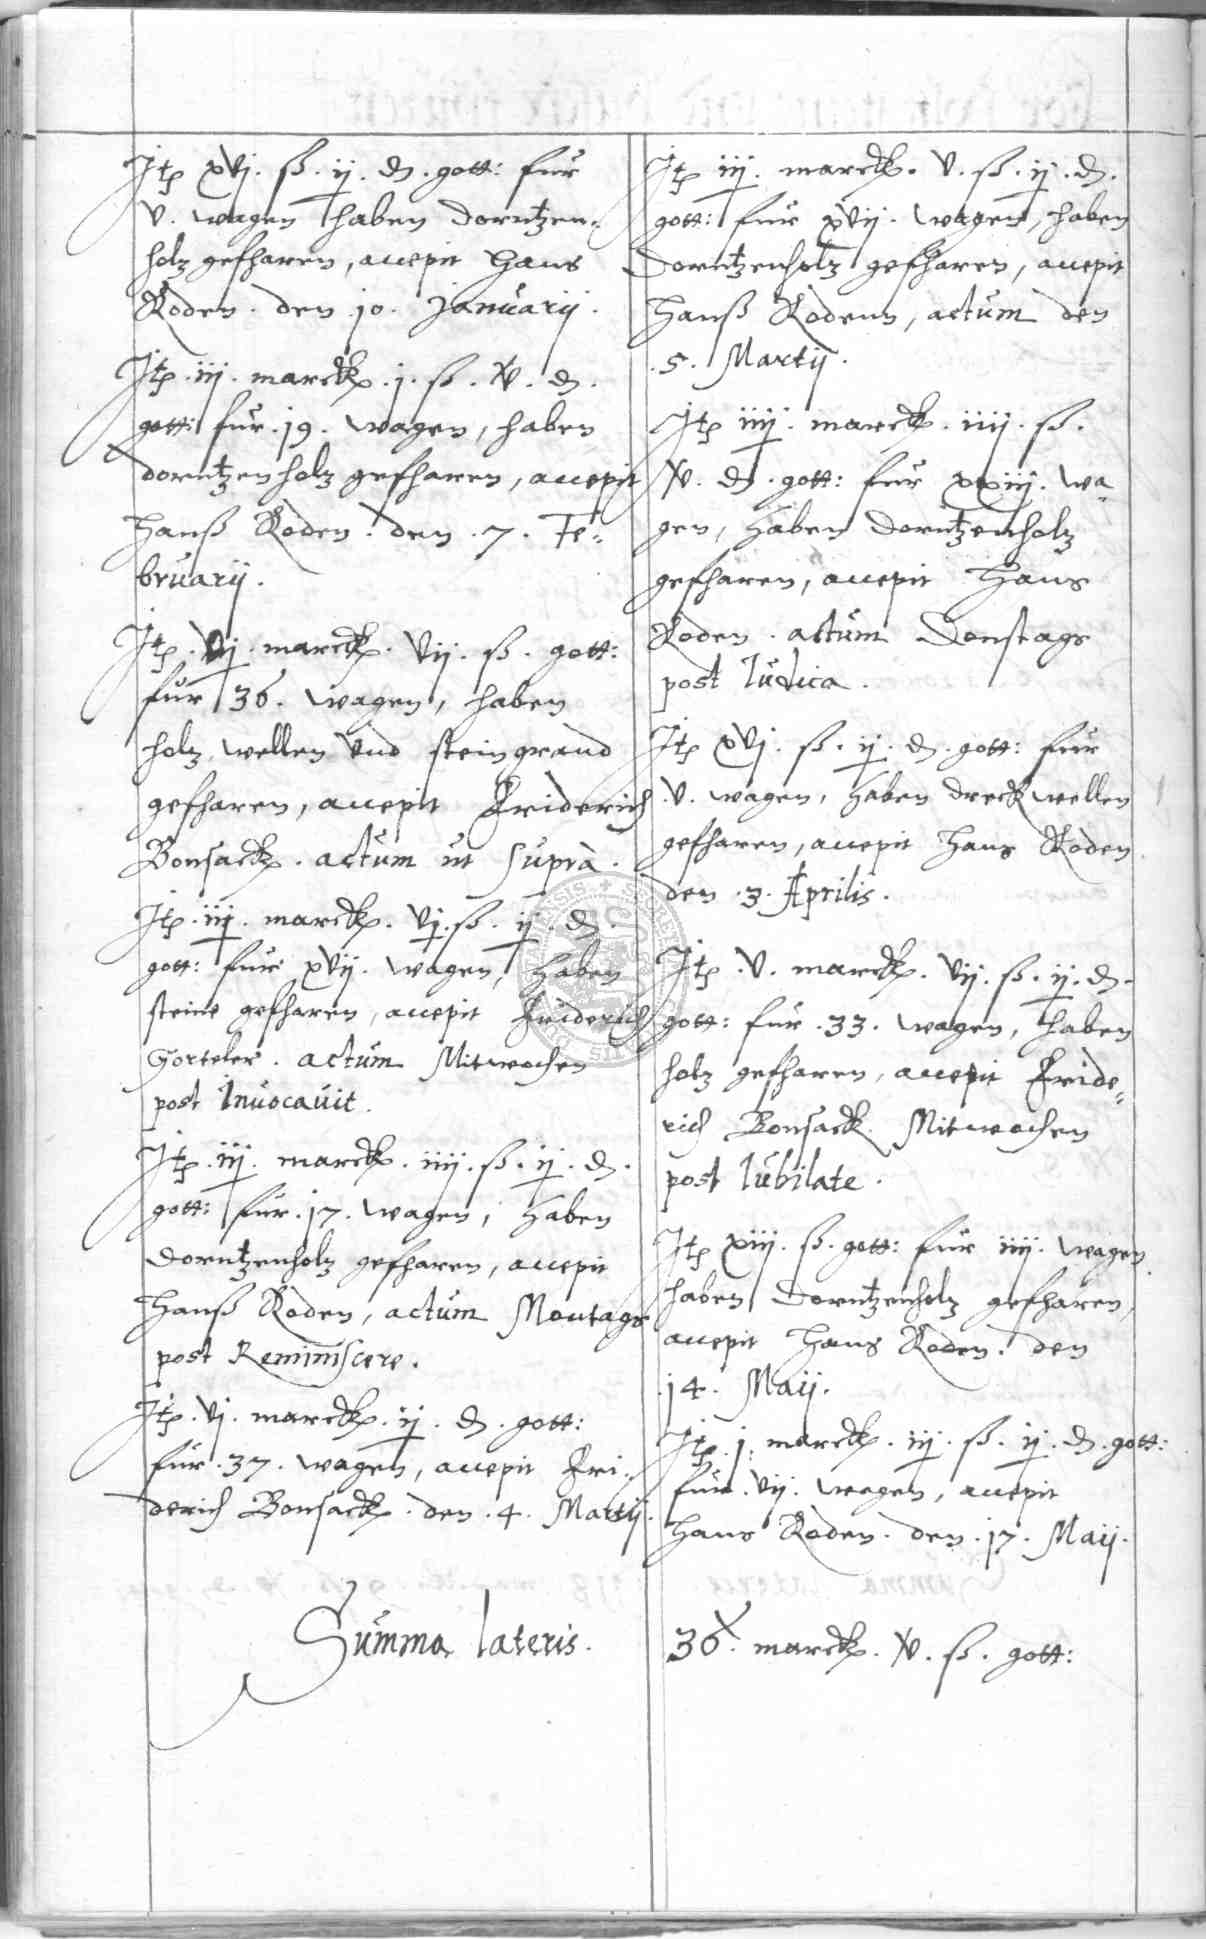 Itz xvj. ß. ij. d. gott: fur
v. wagen haben dorntzen-
holz gefharen, accepit Hans
Roden. den 10. Januarij.
Itz. iij. marck. j. ß. v. d.
gott: fur. 19. wagen, haben
dorntzenholz gefharen, accepit
Hanß Roden. den. 7. Fe=
bruarij.
Itz. vj. marck. vij. ß. gott:
fur 36. wagen, haben
holz, wellen vnd steingrand
gefharen, accepit Friderich
Bonsack. actum ut supra.
Itz. iij. marck. vj. ß. ij. d.
gott: fur xvij. wagen, haben
steine gefharen, accepit Friderich
Gorteler. actum Mitwochen
post Inuocauit.
Itz. iij. marck. iiij. ß. ij. d.
gott: fur. 17. wagen, haben
dorntzenholz gefharen, accepit
Hanß Roden, actum Montags
post Reminiscere.
Itz. vj. marck. ij. d. gott:
fur. 37. wagen, accepit Fri-
derich Bonsack. den. 4. Martij.
Itz iij. marck. v. ß. ij. d.
gott: fur xvij. wagen, haben
dorntzenholtz gefharen, accepit
Hanß Rodenn, actum den
.5. Martij.
Itz iiij. marck. iiij. ß.
v. d. gott: fur xxiij. wa=
gen, haben dorntzenholtz
gefharen, accepit Hans
Roden. actum Donstags
post Iudica.
Itz xvj. ß. ij. d. gott: fur
.v. wagen, haben dreckwellen
gefharen, accepit Hans Roden
den. 3. Aprilis.
Itz. v. marck. vij. ß. ij. d.
gott: fur. 33. wagen, haben
holz gefharen, accepit Fride=
rich Bonsack. Mitwochen
post Iubilate.
Itz xiij. ß. gott: fur iiij. wagen
haben dorntzenholz gefharen,
accepit Hans Roden. den
.14. Maij.
Itz. j. marck. iij. ß. ij. d. gott:
fur. vij. wagen, accepit
Hans Roden. den. 17. Maij.
Summa lateris. 36. marck. v. ß. gott: